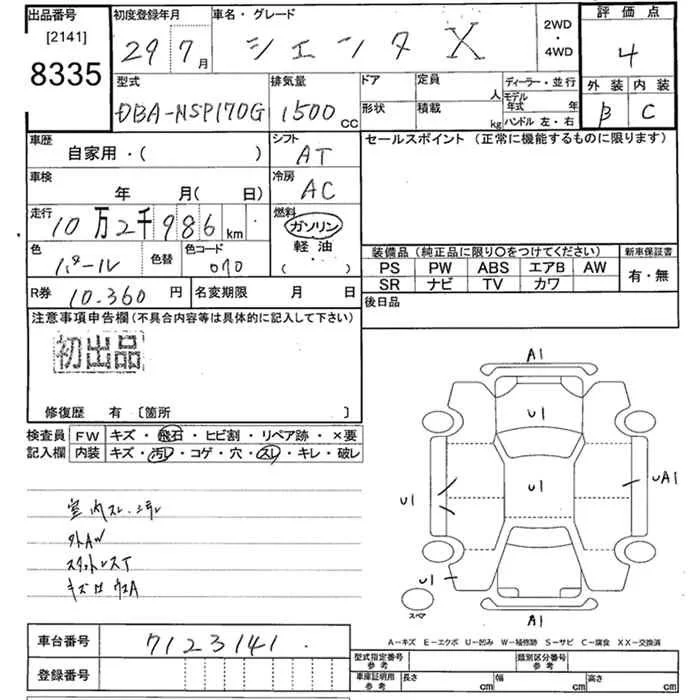 出品番号
[2141]
8335
初度登録年月
29 7月
車名・グレード
シエンタ X
2WD
・
4WD
評価点
4
外装 内装
B C
型式
DBA-NSP170G
排気量
1500 CC
ドア
形状
定員 人
積載 kg
ディーラー・並行
モデル年式 年
ハンドル 左・右
車歴
自家用・( )
シフト
AT
セールスポイント (正常に機能するものに限ります)
車検
年 月( 日)
冷房
AC
走行
10万2千986 km
燃料
ガソリン
軽油
( )
色
パール
色替
色コード
070
装備品 (純正品に限り〇をつけてください)
PS PW ABS エアB AW
SR ナビ TV カワ
新車保証書
有・無
R券 10.360 円
名変期限 月 日
後日品
注意事項申告欄 (不具合内容等は具体的に記入して下さい)
初出品
修復歴 有 〔箇所 〕
検査員 FW キズ・飛石・ヒビ割・リペア跡・×要
記入欄 内装 キズ・汚レ・コゲ・穴・スレ・キレ・破レ
室内スレ・
外AW
キズ
A1
U1
U1
U1
UA1
U1
スペア
A1
A-キズ E-エクボ U-凹み W-補修跡 S-サビ C-腐食 XX-交換済
車台番号 7123141
登録番号
型式指定番号
参考
類別区分番号
参考
車庫証明用
参考
長さ cm
幅 cm
高さ cm